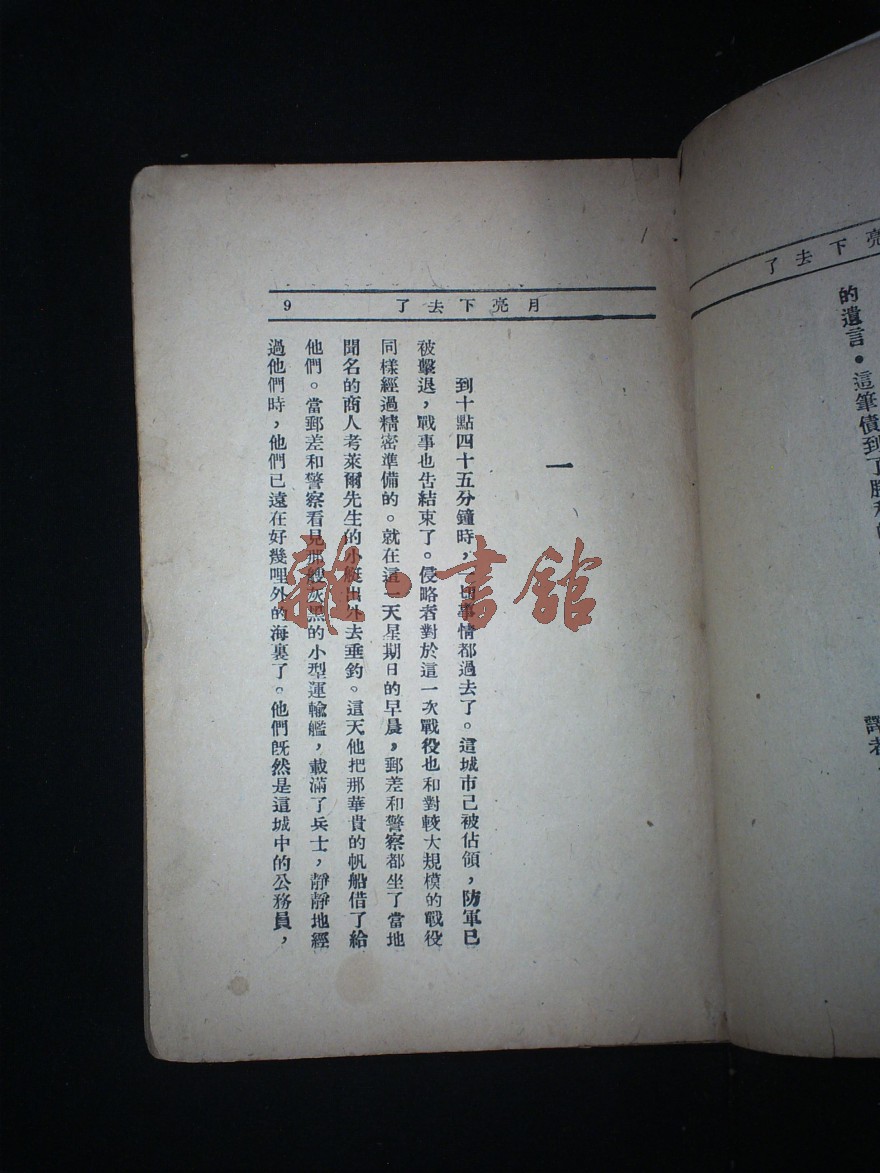 了去下亮
的遺言。這筆債到了勝利的
譯者
9 了去下亮月
一
到十點四十五分鐘時，一切事情都過去了。這城市已被佔領，防軍已
被擊退，戰事也告結束了。侵略者對於這一次戰役也和對較大規模的戰役
同樣經過精密準備的。就在這一天星期日的早晨，郵差和警察都坐了當地
聞名的商人考萊爾先生的小艇出外去垂釣。這天他把那華貴的帆船借了給
他們。當郵差和警察看見那艘灰黑的小型運輸艦，載滿了兵士，靜靜地經
過他們時，他們已遠在好幾哩外的海裏了。他們旣然是這城中的公務員，
雜·書館